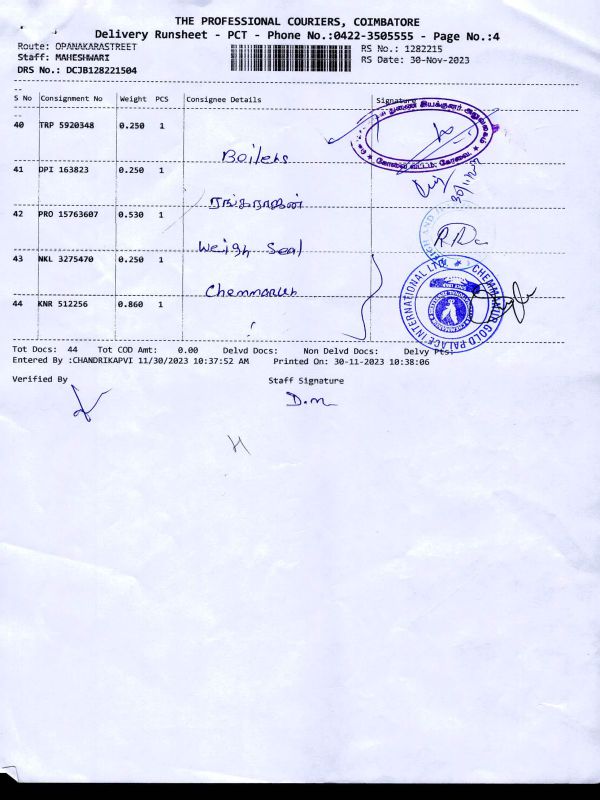 THE PROFESSIONAL COURIERS, COIMBATORE
Delivery Runsheet - PCT - Phone No.:0422-3505555 - Page No.:4
Route: OPANAKARASTREET
RS No.: 1282215
Staff: MAHESHWARI
RS Date: 30-Nov-2023
DRS No.: DCJB128221504
S No Consignment No Weight PCS Consignee Details Signature
40 TRP 5920348 0.250 1
Boilers
41 DPI 163823 0.250 1
42 PRO 15763607 0.530 1
Weigh Seal
43 NKL 3275470 0.250 1
44 KNR 512256 0.860 1
CHEMMANUR GOLD PALACE INTERNATIONAL LTD.
Tot Docs: 44 Tot COD Amt: 0.00 Delvd Docs: Non Delvd Docs: Delvy Pts:
Entered By :CHANDRIKAPVI 11/30/2023 10:37:52 AM Printed On: 30-11-2023 10:38:06
Verified By Staff Signature
D.m